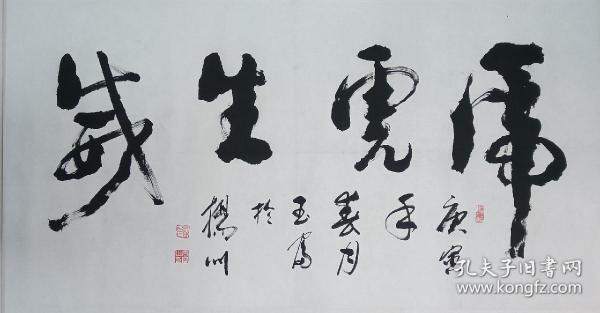 虎虎生威
庚寅
年
春月
玉富
於
川
孔夫子旧书网
www.kongfz.com